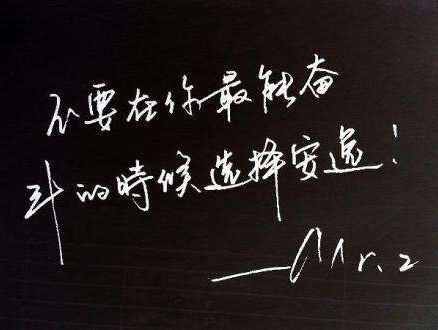 不要在你最能奋
斗的時候选择安逸!
——Mr.2